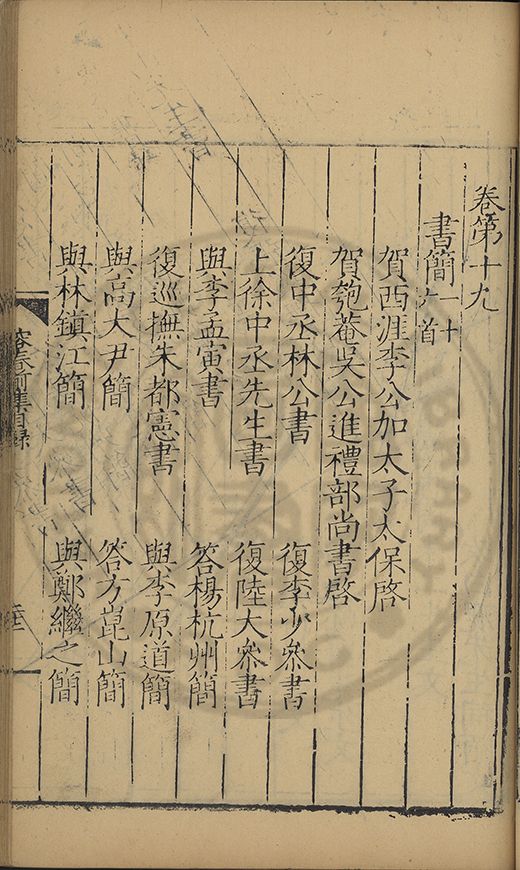 卷第十九
書簡一十六首
賀西涯李公加太子太保啓
賀匏菴吳公進禮部尚書啓
復中丞林公書 復李少叅書
上徐中丞先生書 復陸大叅書
與李孟寅書 答楊杭州簡
復巡撫朱都憲書 與李原道簡
與高大尹簡 答方崑山簡
與林鎮江簡 與鄭繼之簡
容春前集目録